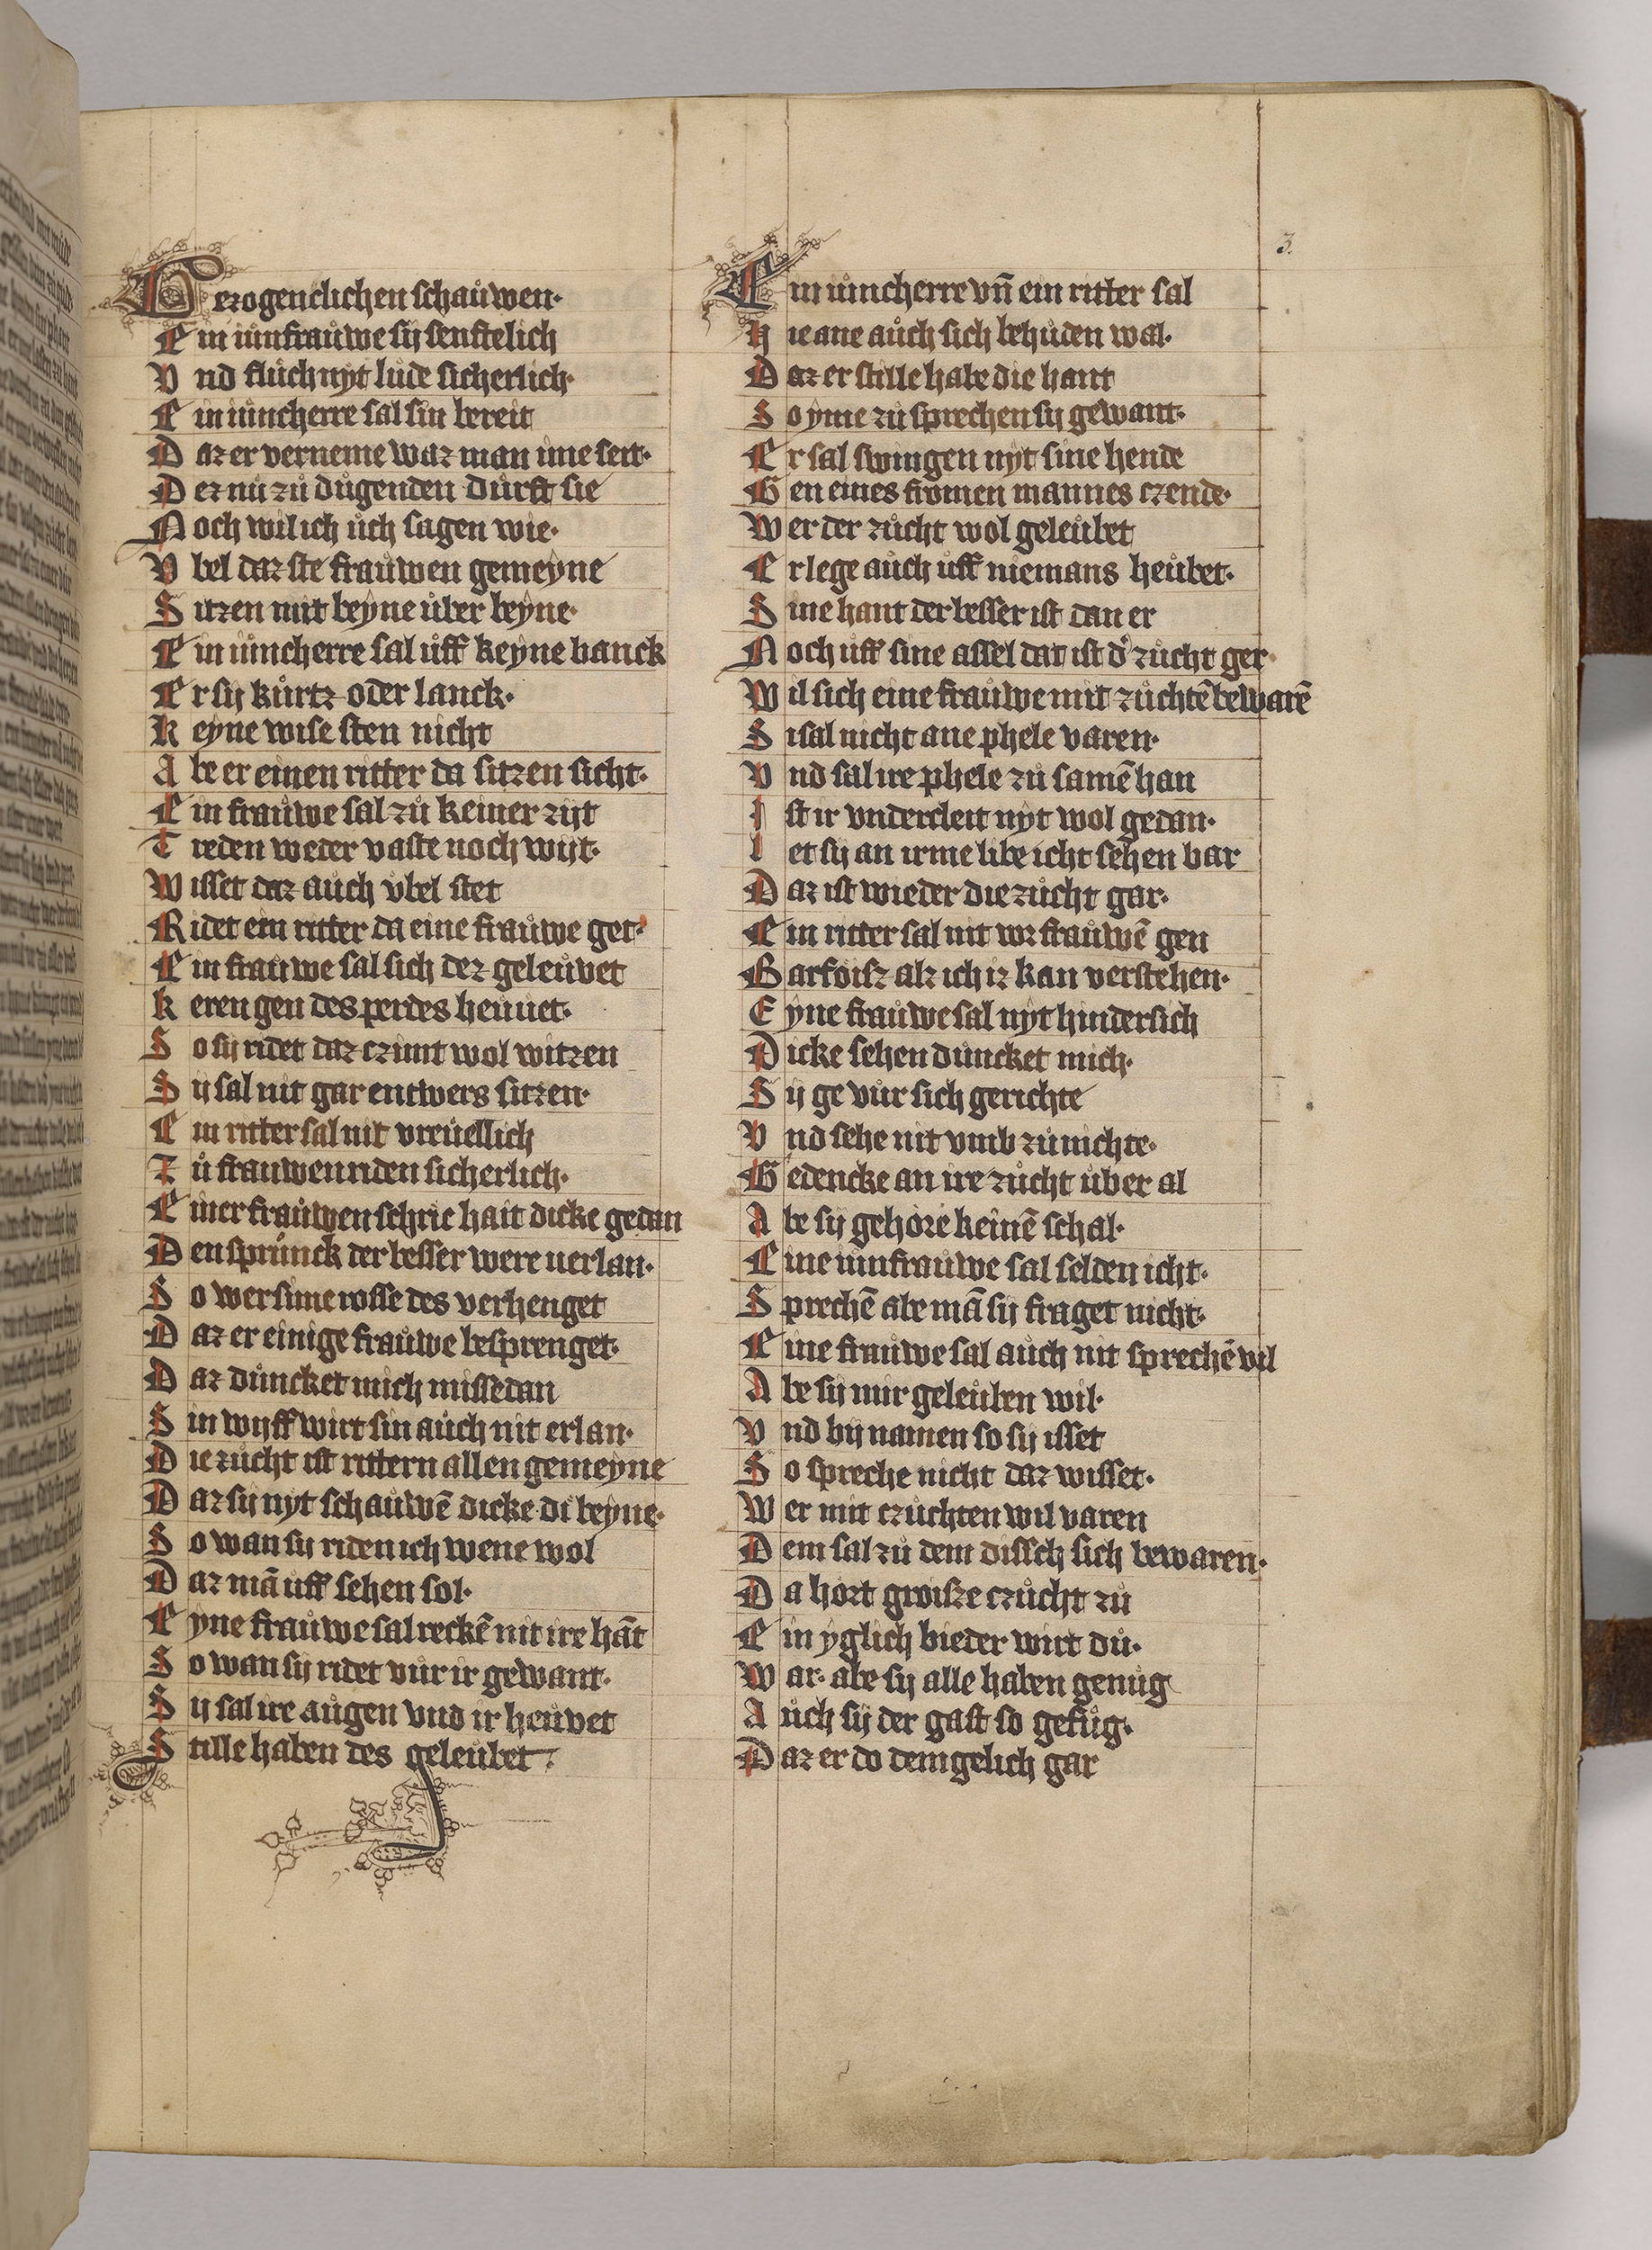 3.
Gezogenclichen schauͦwen·
Ein iuͦnfrauͦwe sij senftelich
Vnd fluͦch nyt luͦde sicherlich·
Ein iuͦncherre sal sin bereit
Daz er verneme waz man ime seit·
Dez nuͦ zuͦ duͦgenden duͦrft sie
Noch wil ich uͦch sagen wie·
Vbel daz ste frauͦwen gemeyne
Sitzen mit beyne uͦber beyne·
Ein iuͦncherre sal uͦff keyne banck
Er sij kuͦrtz oder lanck·
Keyne wise sten nicht
Abe er einen ritter da sitzen sicht·
Ein frauͦwe sal zuͦ keiner zijt
Treden weder vaste noch wijt·
Wisset daz auͦch vbel stet
Ridet ein ritter da eine frauͦwe get·
Ein frauͦwe sal sich dez geleuͦvet
keren gen des perdes heuͦuet·
So sij ridet daz czimt wol witzen
Sij sal nit gar entwers sitzen·
Ein ritter sal nit vreuͦellich
Zuͦ frauwen riden sicherlich·
Einer frauͦwen schrie hait dicke gedan
Den spruͦnck der besser were uerlan·
So wer sime rosse des verhenget
Daz er einige frauͦwe besprenget·
Daz duͦncket mich missedan
Sin wijff wirt sin auͦch nit erlan·
Die zuͦcht ist rittern allen gemeyne
Daz sij nyt schauͦwē dicke di beyne·
So wan sij riden ich wene wol
Daz mā uff sehen sol·
Eyne frauͦwe sal reckē nit ire hāt
So wan sij ridet vuͦr ir gewant·
Sij sal ire auͦgen vnd ir heuͦvet
Stille haben des geleuͦbet·
Ein iuͦncherre vn̄ ein ritter sal
Hie ane auͦch sich behuͦden wal·
Daz er stille habe die hant
So yme zuͦ sprechen sij gewant·
Er sal swingen nyt sine hende
Gen eines fromen mannes czende·
Wer der zuͦcht wol geleuͦbet
Er lege auͦch uͦff niemans heuͦbet·
Sine hant der besser ist dan er
Noch uͦff sine assel dat ist d' zuͦcht ger·
Wil sich eine frauͦwe mit zuͦchtē bewarē
Si sal nicht ane phele varen·
Vnd sal ire phele zuͦ samē han
Ist ir vndercleit nyt wol gedan·
Let sij an irme libe icht sehen bar
Daz ist wieder die zuͦcht gar·
Ein ritter sal nit vor frauͦwē gen
Barfoisz alz ich iz kan verstehen·
Eyne frauͦwe sal nyt hindersich
Dicke sehen duͦncket mich·
Sij ge vuͦr sich gerichte
Vnd sehe nit vmb zuͦ nichte·
Gedencke an ire zuͦcht uͦber al
Abe sij gehore keinē schal·
Eine iuͦnfrauͦwe sal selden icht·
Sprechē abe mā sij fraget nicht·
Eine frauͦwe sal auͦch nit sprechē vil
Abe sij mir geleuͦben wil·
Vnd bij namen so sij isset
So spreche nicht daz wisset·
Wer mit czuͦchten wil varen
Dem sal zuͦ dem dissch sich bewaren·
Da hort groisze czuͦcht zuͦ
Ein yglich bieder wirt duͦ·
War· abe sij alle haben genuͦg
Auͦch sij der gast so gefuͦg·
Daz er do dem gelich gar